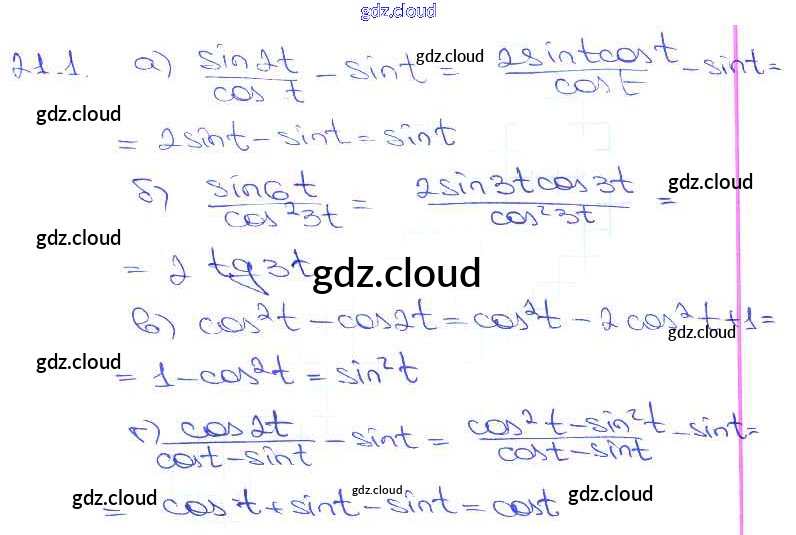 gdz.cloud
21.1. а) sin2t/cos t - sint = 2sintcost/cost - sint =
gdz.cloud
gdz.cloud
= 2sint - sint = sint
б) sin6t/cos²3t = 2sin3tcos3t/cos²3t =
gdz.cloud
gdz.cloud
= 2 tg3t
gdz.cloud
в) cos²t - cos2t = cos²t - 2cos²t + 1 =
gdz.cloud
gdz.cloud
= 1 - cos²t = sin²t
г) cos2t/cost - sint - sint = cos²t - sin²t/cost - sint - sint =
gdz.cloud
gdz.cloud
gdz.cloud
= cost + sint - sint = cost